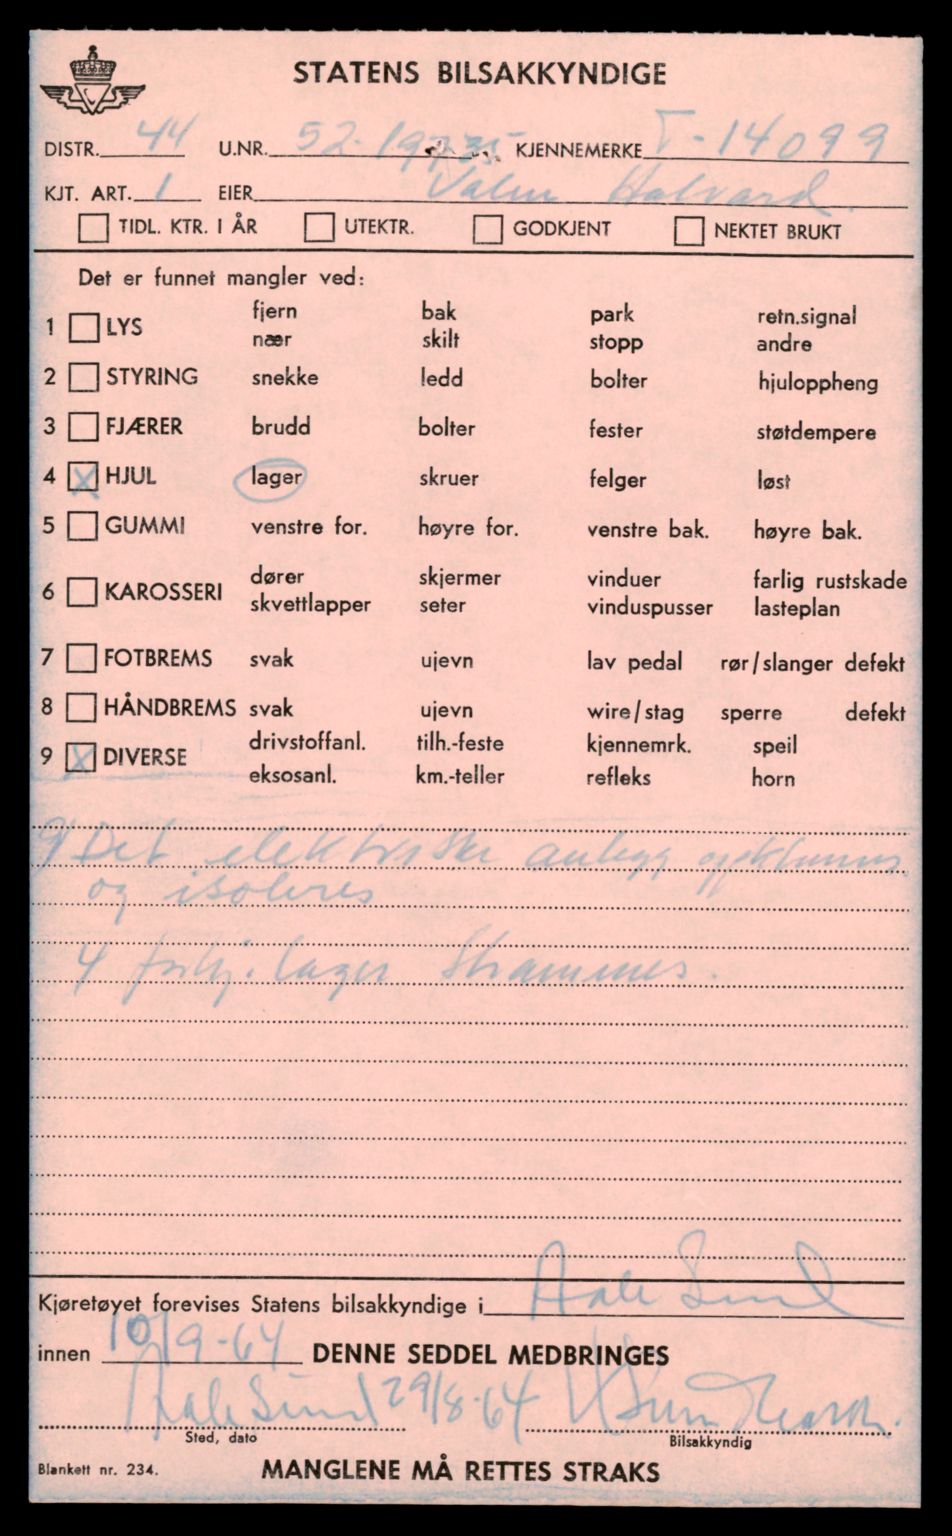 STATENS BILSAKKYNDIGE
DISTR. 44 U.NR. 52- KJENNEMERKE T-14099
KJT. ART. 1 EIER Halvard
TIDL. KTR. I ÅR UTEKTR. GODKJENT NEKTET BRUKT
Det er funnet mangler ved:
fjern bak park retn.signal
1 LYS
nær skilt stopp andre
2 STYRING snekke ledd bolter hjuloppheng
3 FJÆRER brudd bolter fester støtdempere
4 X HJUL lager skruer felger løst
5 GUMMI venstre for. høyre for. venstre bak. høyre bak.
dører skjermer vinduer farlig rustskade
6 KAROSSERI
skvettlapper seter vinduspusser lasteplan
7 FOTBREMS svak ujevn lav pedal rør/slanger defekt
8 HÅNDBREMS svak ujevn wire/stag sperre defekt
drivstoffanl. tilh.-feste kjennemrk. speil
9 X DIVERSE
eksosanl. km.-teller refleks horn
9 Det elektriske anlegg
og isoleres
4 forhj. lager strammes.
Kjøretøyet forevises Statens bilsakkyndige i Aalesund
innen 10/9-64 DENNE SEDDEL MEDBRINGES
Aalesund 29/8-64
Sted, dato
Bilsakkyndig
Blankett nr. 234. MANGLENE MÅ RETTES STRAKS